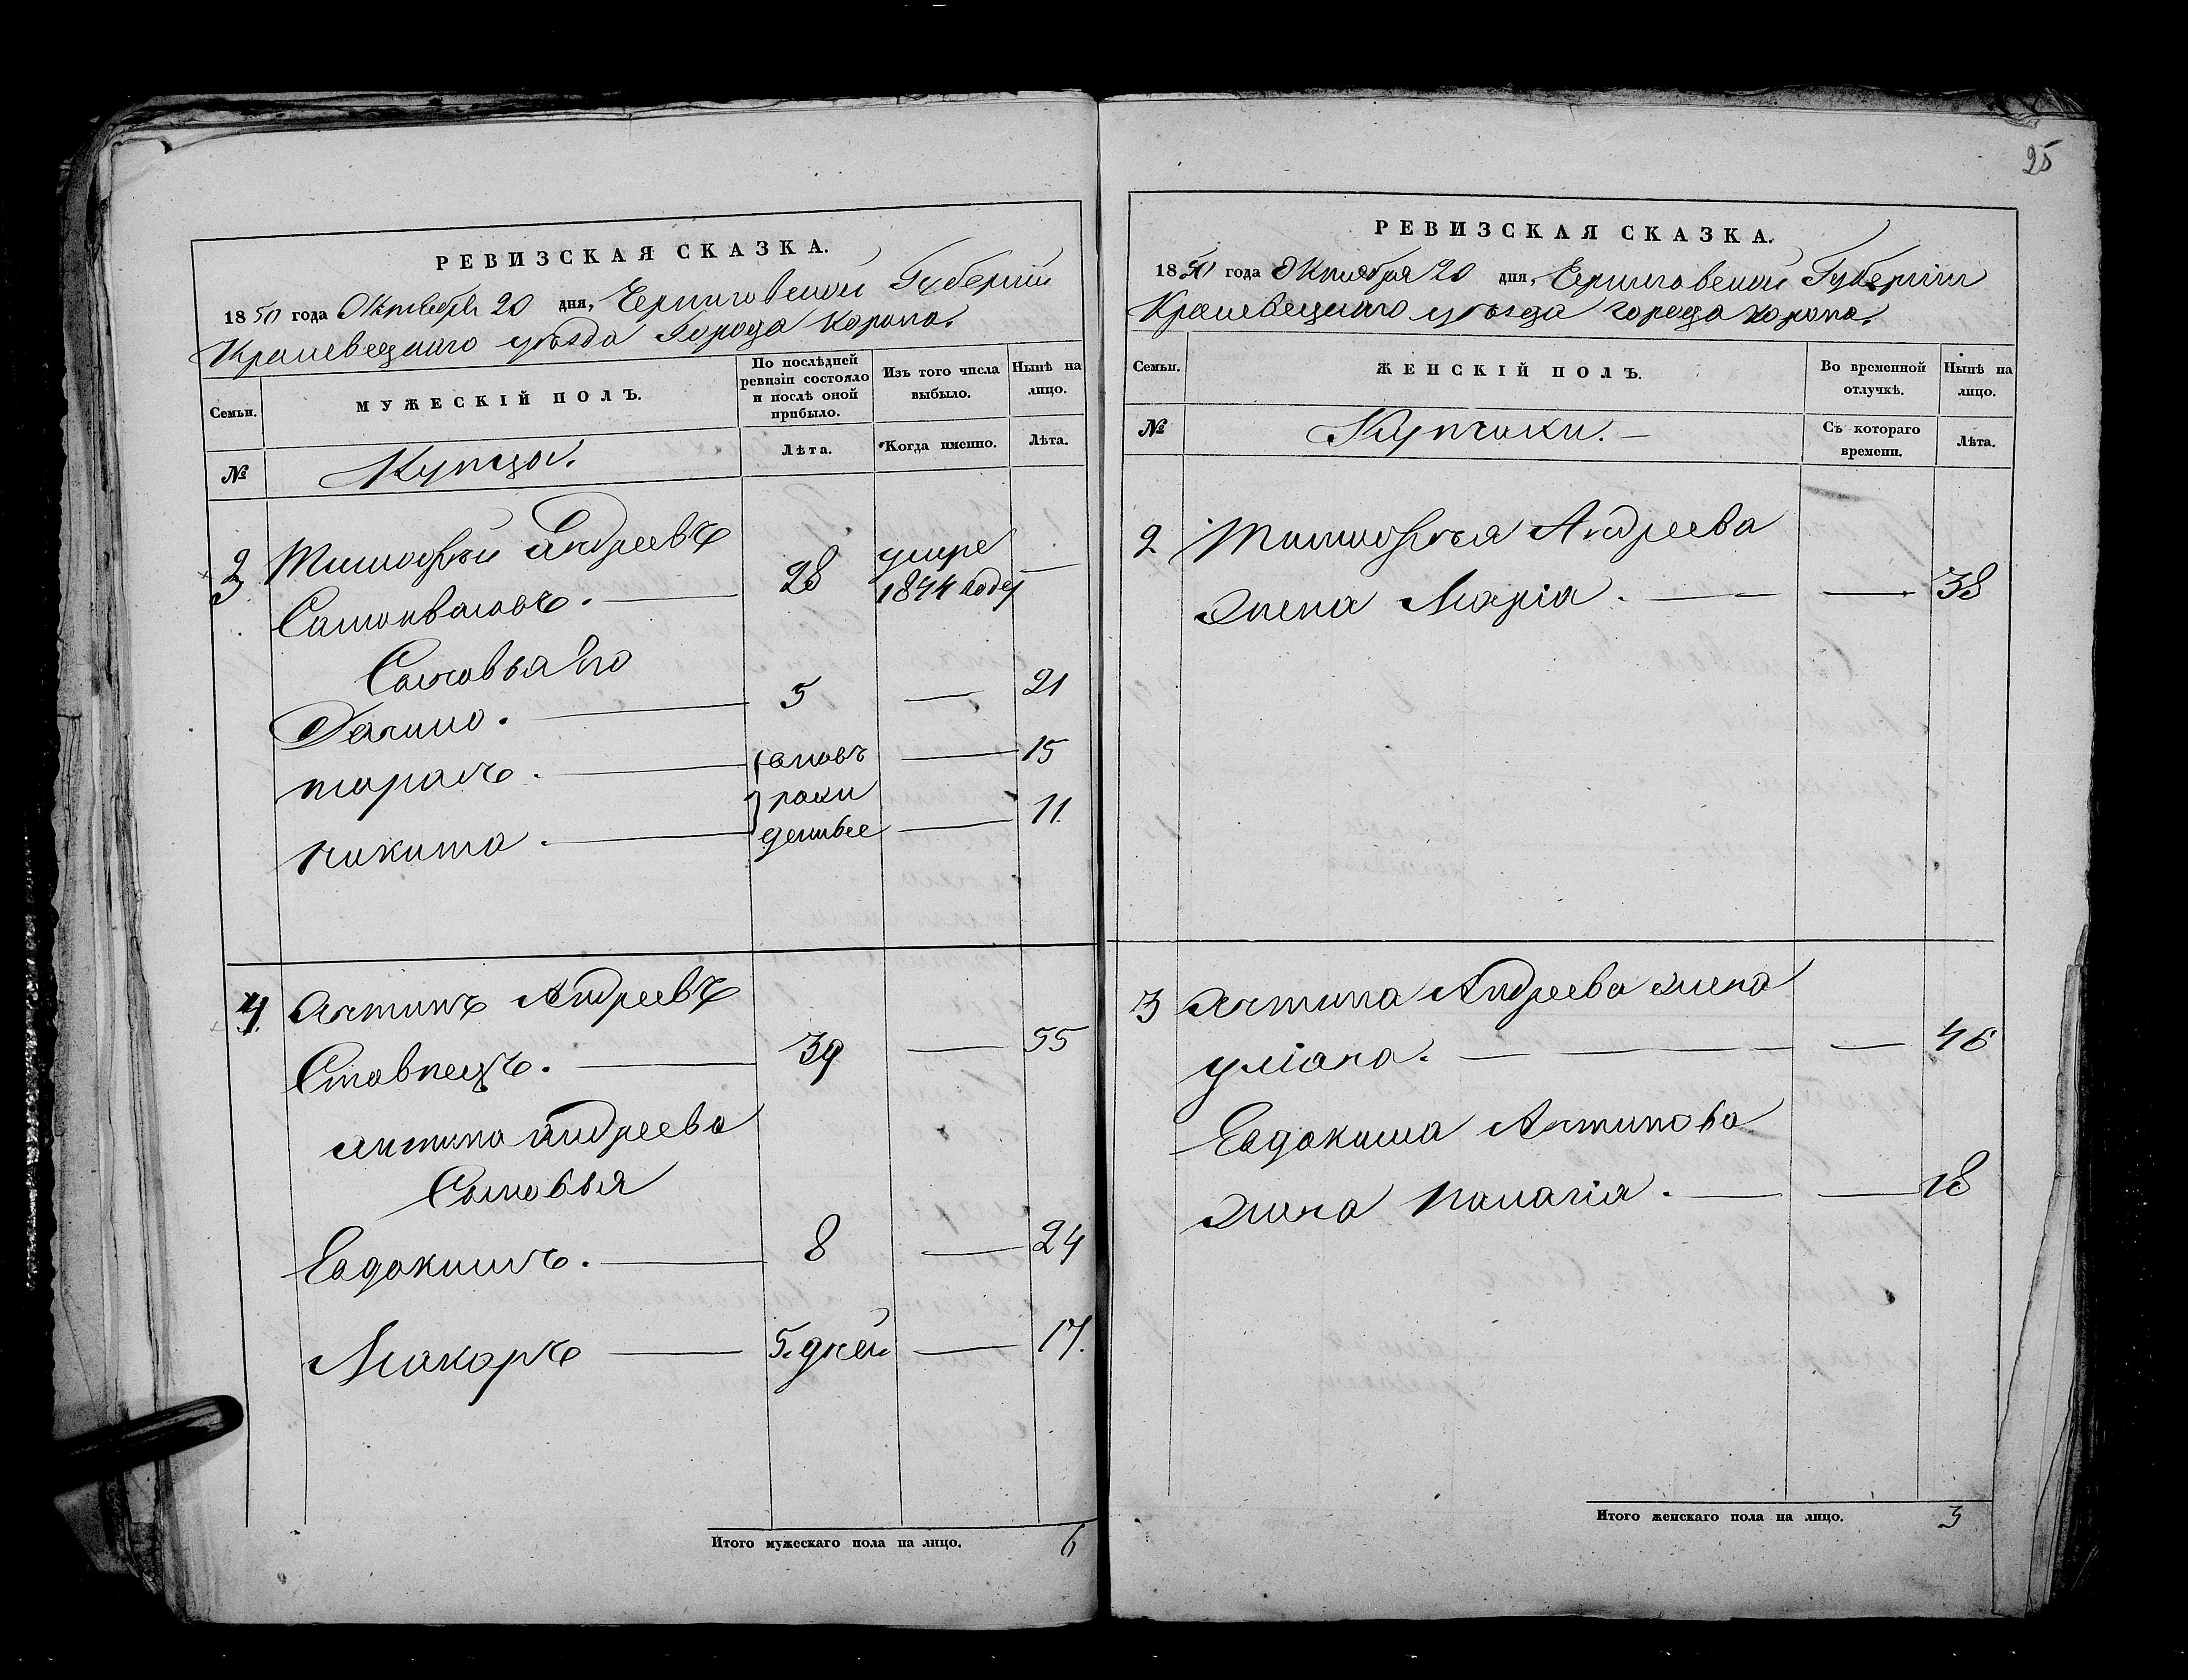 25
РЕВИЗСКАЯ СКАЗКА.
1850 года Октября 20 дня, Черниговской Губернии
Кролевецкаго уезда Города Коропа.
Семьи.
МУЖЕСКІЙ ПОЛЪ.
По послѣдней ревизіи состояло и послѣ оной прибыло.
Изъ того числа выбыло.
Нынѣ на лицо.
№
Купцы.
Лѣта.
Когда именно.
Лѣта.
2 Тимофей Андреевъ
3 28 умре 1844 году —
Сыновья его
Данило. — 5 — 21
тарасъ. — вновь — 15
рожи
никита. — денные — 11.
4. Антипъ Андреевъ
Ставпецъ. — 39 — 55
антипа андреева
Сыновья
Евдокимъ. — 8 — 24
Макаръ — 5. дней — 17.
Итого мужескаго пола на лицо. 6
РЕВИЗСКАЯ СКАЗКА.
1850 года Октября 20 дня, Черниговской Губерніи
Кролевецкаго уѣзда города Коропа.
Семьи.
ЖЕНСКІЙ ПОЛЪ.
Во временной отлучкѣ.
Нынѣ на лицо.
№
Купчихи. —
Съ котораго времени.
Лѣта.
2 Тимофея Андреева
Жена Марія. — — — 38
3 Антипа Андреева жена
уліана. — — — — 46
Евдокима Антипова
Жена Палагія. — — 18
Итого женскаго пола на лицо. 3